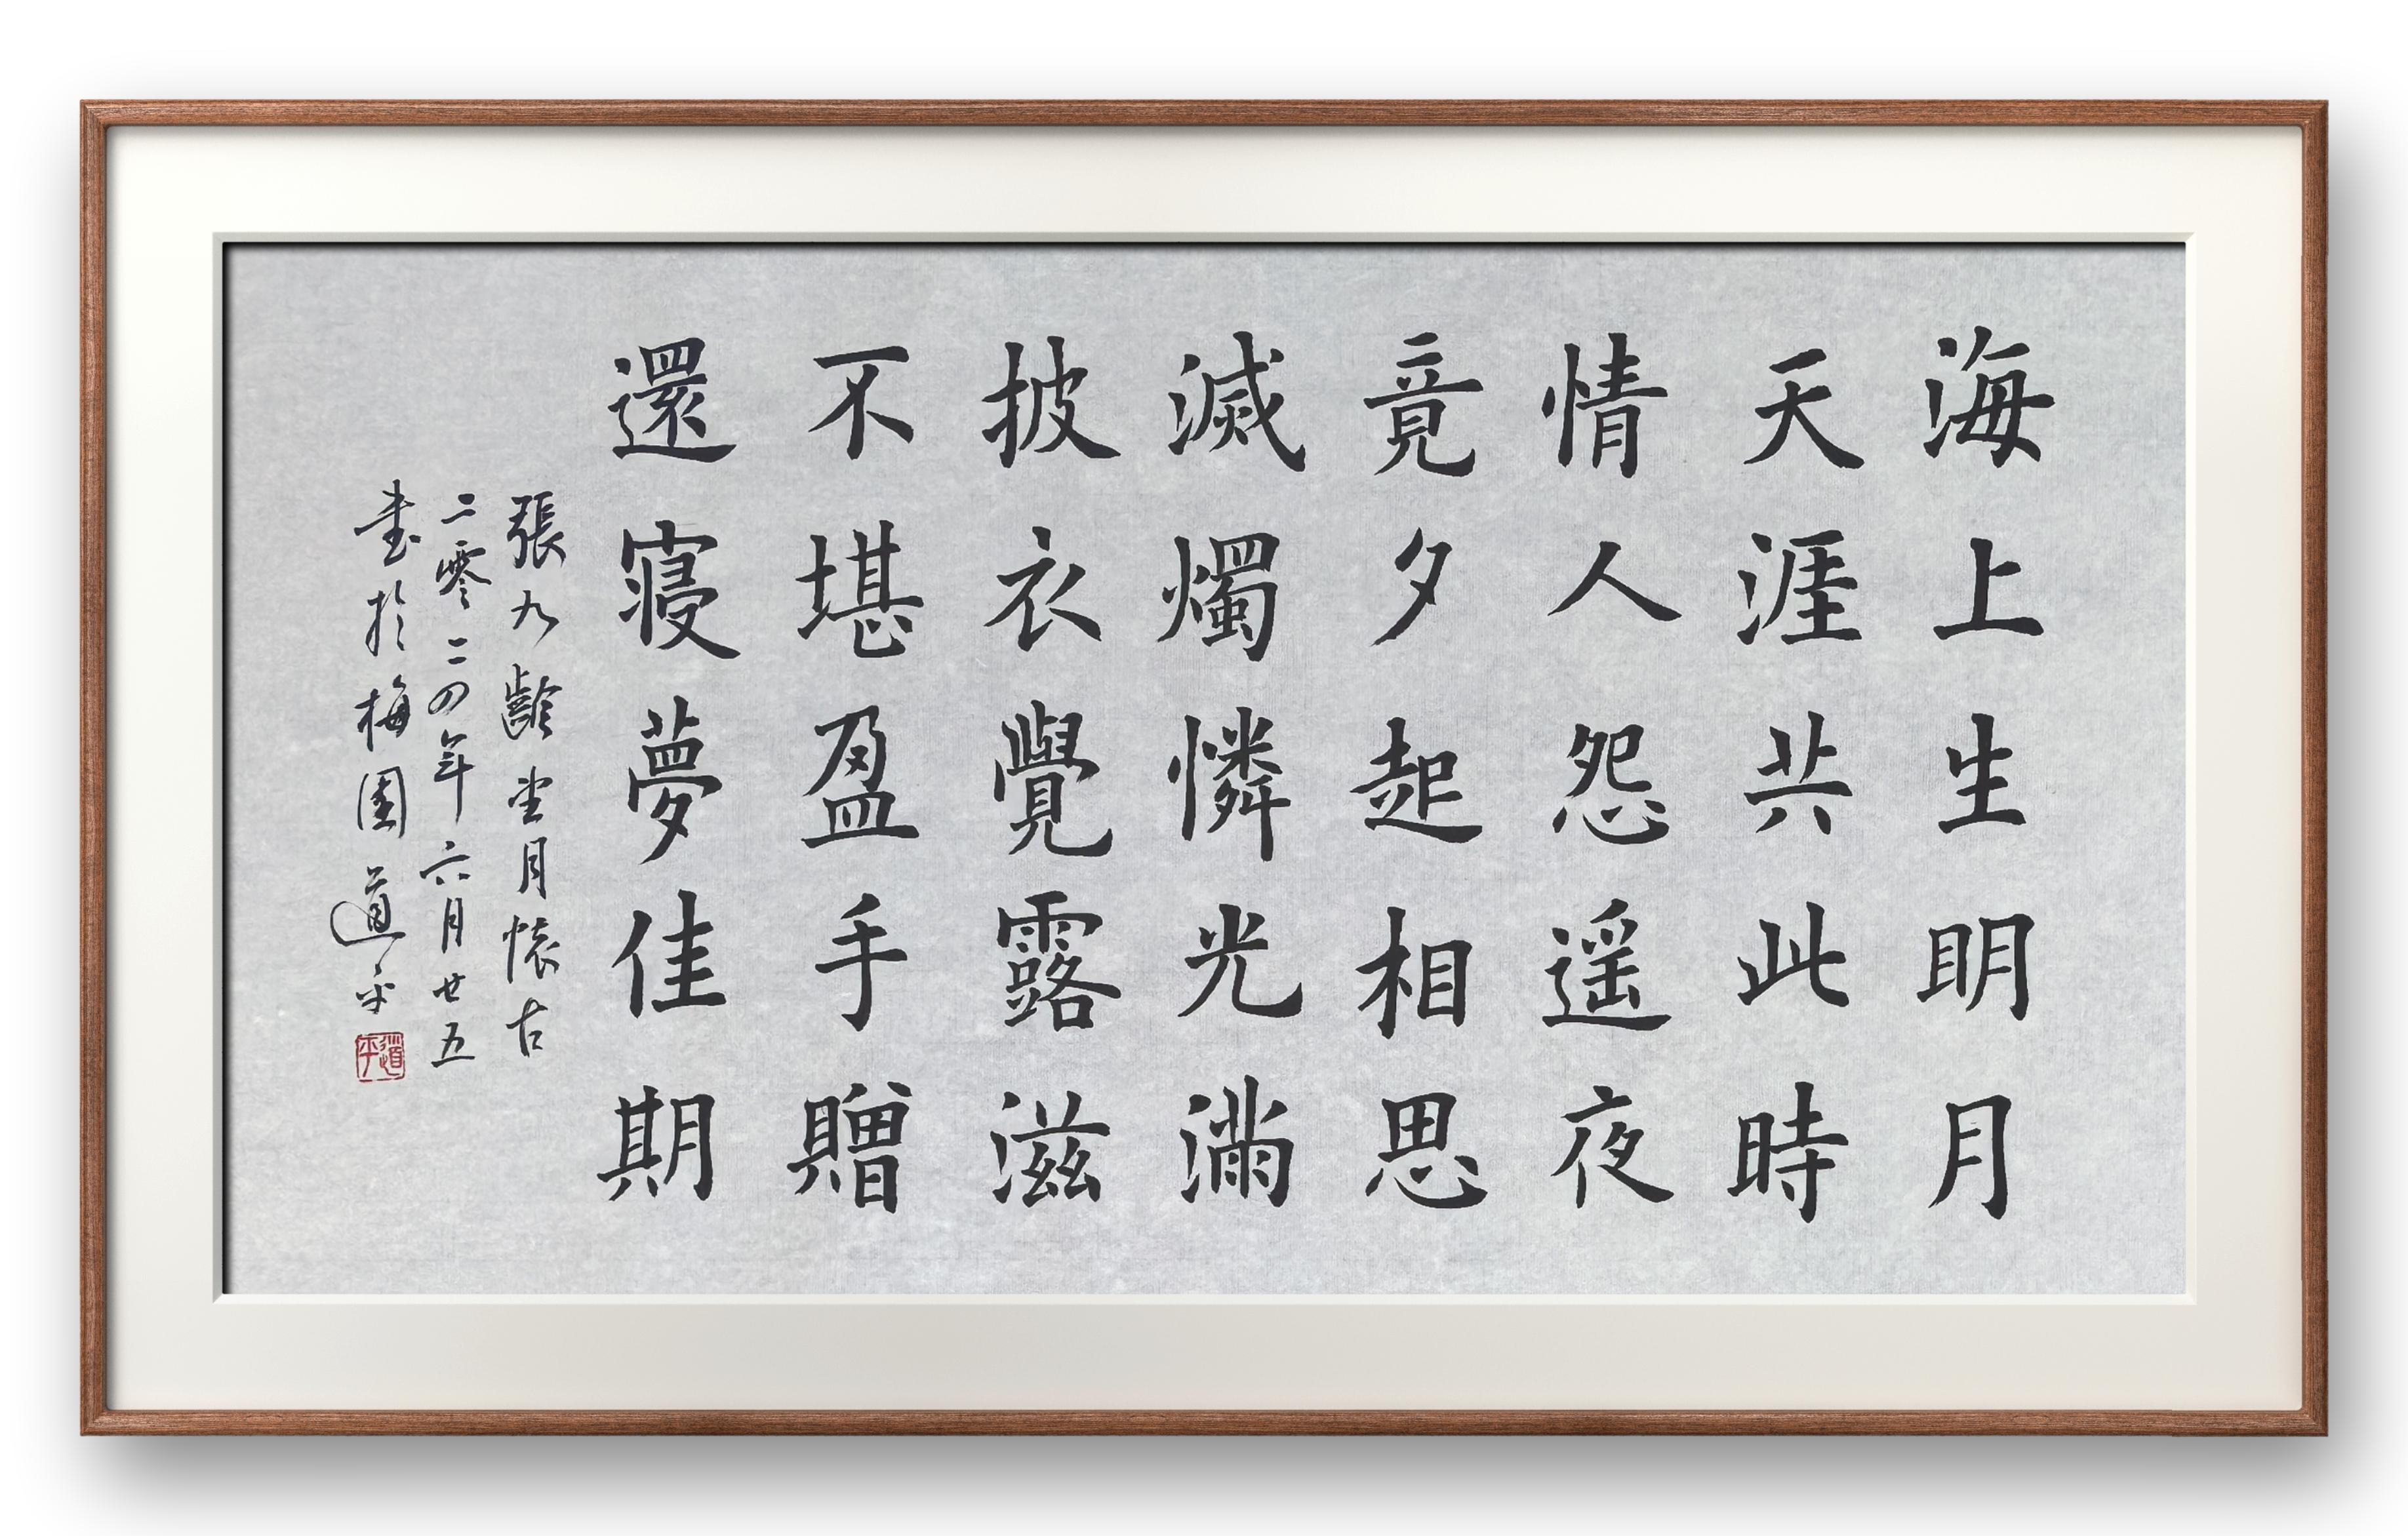 海上生明月
天涯共此時
情人怨遥夜
竟夕起相思
滅燭憐光滿
披衣覺露滋
不堪盈手贈
還寢夢佳期
張九齡望月懷古
二零二四年六月廿五
書於梅園道平
道平